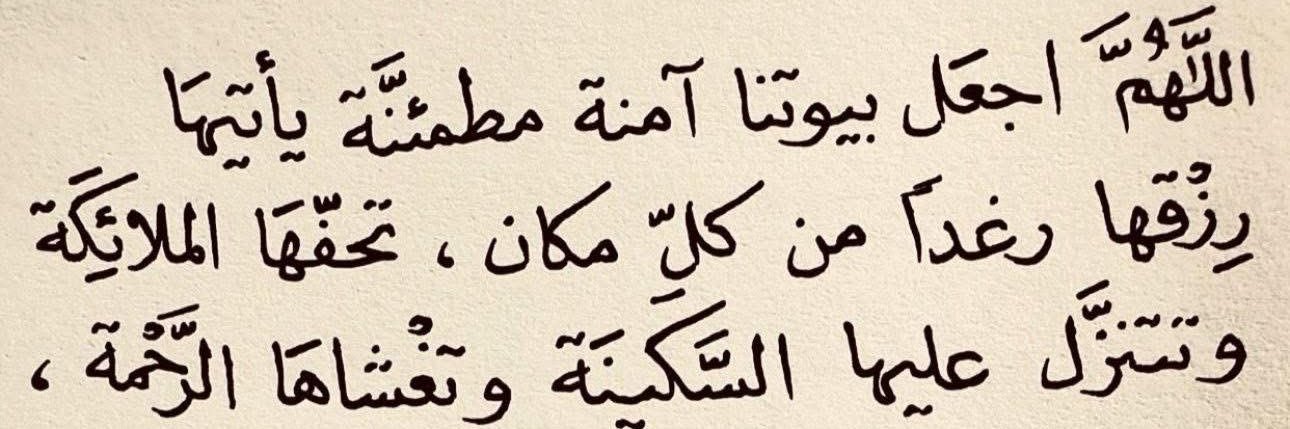 اللَّهُمَّ اجعَل بيوتنا آمنة مطمئنَّة يأتيهَا
رِزْقها رغداً من كلِّ مكان ، تحفّهَا الملائِكَة
وتتنزَّل عليها السَّكَينَة وتغْشاهَا الرَّحْمة ،